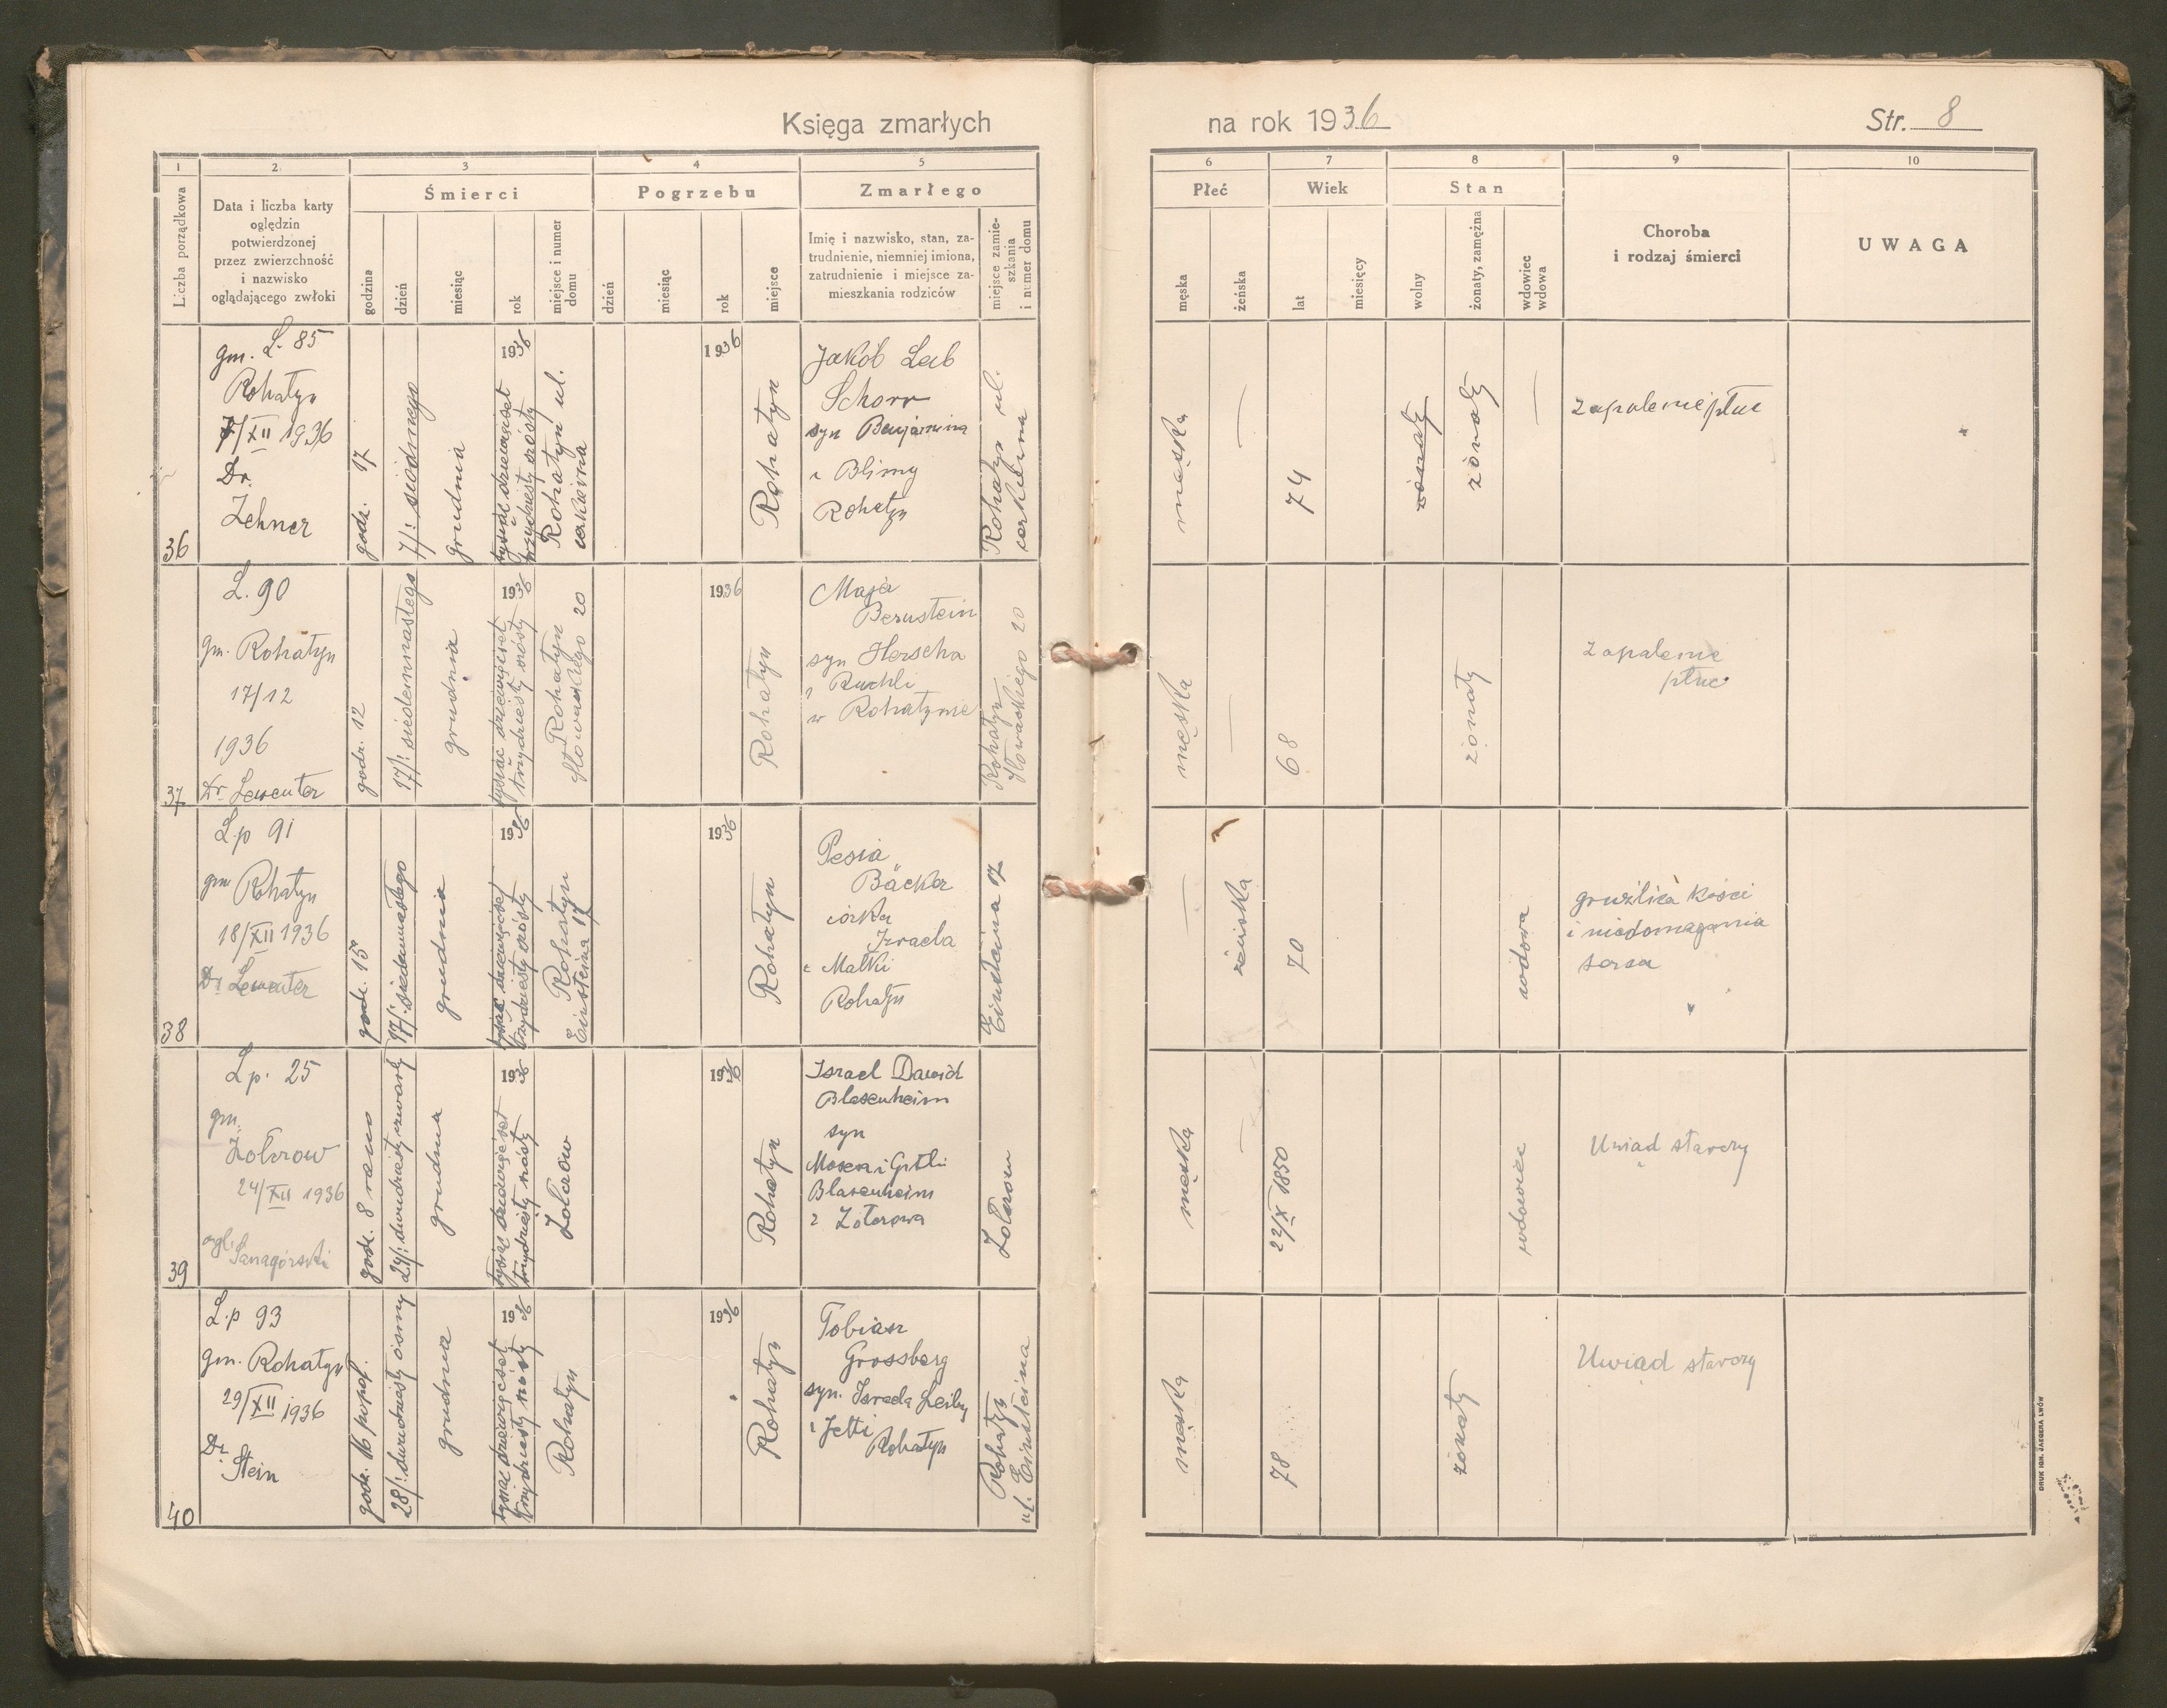 Księga zmarłych
na rok 1936
Str. 8
1
2
3
4
5
6
7
8
9
10
Liczba porządkowa
Data i liczba karty
oględzin
potwierdzonej
przez zwierzchność
i nazwisko
oglądającego zwłoki
Śmierci
godzina
dzień
miesiąc
rok
miejsce i numer
domu
Pogrzebu
dzień
miesiąc
rok
miejsce
Zmarłego
Imię i nazwisko, stan, za-
trudnienie, niemniej imiona,
zatrudnienie i miejsce za-
mieszkania rodziców
miejsce zamie-
szkania
i numer domu
Płeć
męska
żeńska
Wiek
lat
miesięcy
Stan
wolny
żonaty, zamężna
wdowiec
wdowa
Choroba
i rodzaj śmierci
UWAGA
36
gm. L. 85
Rohatyn
7/XII 1936
Dr.
Zehner
godz. 17
7/: siódmego
grudnia
1936
tysiąc dziewięćset
trzydziesty szósty
Rohatyn ul.
cerkiewna
1936
Rohatyn
Jakób Leib
Schorr
syn Benjamina
i Blimy
Rohatyn
Rohatyn ul.
cerkiewna
męska
—
74
żonaty
żonaty
—
zapalenie płuc
37
L. 90
gm. Rohatyn
17/12
1936
Dr. Lewenter
godz. 12
17/: siedemnastego
grudnia
1936
tysiąc dziewięćset
trzydziesty szósty
Rohatyn
Słowackiego 20
1936
Rohatyn
Maja
Bernstein
syn Herscha
i Ruchli
w Rohatynie
Rohatyn
Słowackiego 20
męska
—
68
żonaty
zapalenie
płuc
38
L.p 91
gm Rohatyn
18/XII 1936
Dr Lewenter
godz. 15
17/: siedemnastego
grudnia
1936
tysiąc dziewięćset
trzydziesty szósty
Rohatyn
Einsteina 17
1936
Rohatyn
Pesia
Bäcker
córka
Izraela
i Malki
Rohatyn
Einsteina 17
—
żeńska
70
wdowa
gruźlica kości
i niedomagania
serca
39
Lp. 25
gm.
Żołczów
24/XII 1936
ogl.
godz. 8 rano
24/: dwudziesty czwarty
grudnia
1936
tysiąc dziewięćset
trzydziesty szósty
1936
Rohatyn
Israel Dawid
Blasenheim
syn
Mosesa i Gitli
Blasenheim
męska
—
22/X 1850
wdowiec
Uwiąd starczy
40
L.p 93
gm. Rohatyn
29/XII 1936
Dr.
Stein
godz. 16 popoł.
28/: dwudziesty ósmy
grudnia
1936
tysiąc dziewięćset
trzydziesty szósty
Rohatyn
1936
Rohatyn
Tobiasz
Grossberg
syn. Israela Leiby
i Jetti
Rohatyn
Rohatyn
ul. Einsteina
męska
78
żonaty
Uwiąd starczy
DRUK IGN. JAEGERA LWÓW